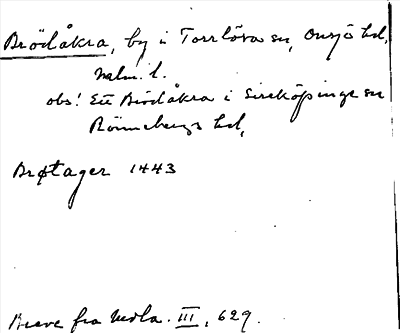 Brödåkra, by i Torrlösa sn, Onsjö hd,
Malm. l.
obs! Ett Brödåkra i Sireköpinge sn
Rönnebergs hd,
Brøtager 1443
Breve fra Mdla. III, 629.